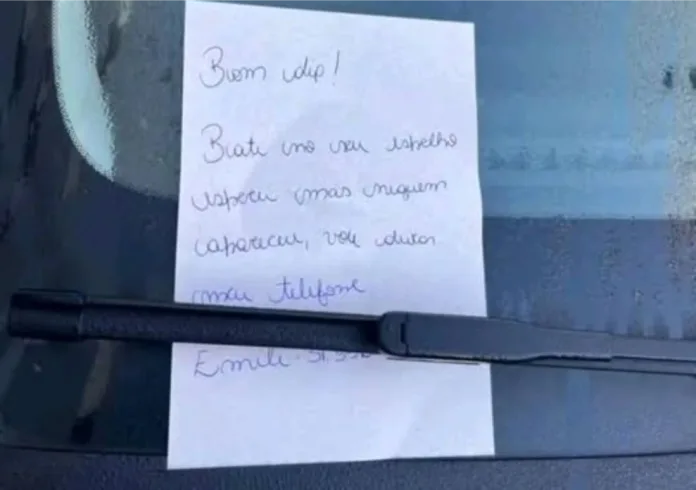 Bom dip!
Bati no seu espelho
esperei mas niguem
apareceu, vou deixar
meu telefone
Emili